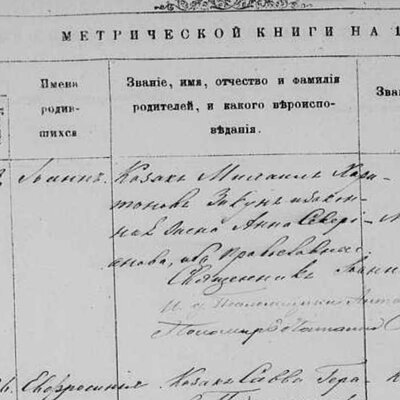 МЕТРИЧЕСКОЙ КНИГИ НА 1
Имена родив-шихся
Званіе, имя, отчество и фамилія
родителей, и какого вѣроиспо-
вѣданія.
Зва
Іоаннъ.
Козакъ Михаилъ Хари-
тоновъ и закон-
ная жена Анна Севері-
анова, оба православные
Священникъ Іоанн
Пономарь
Евфросинія
Козакъ Савва Гера-